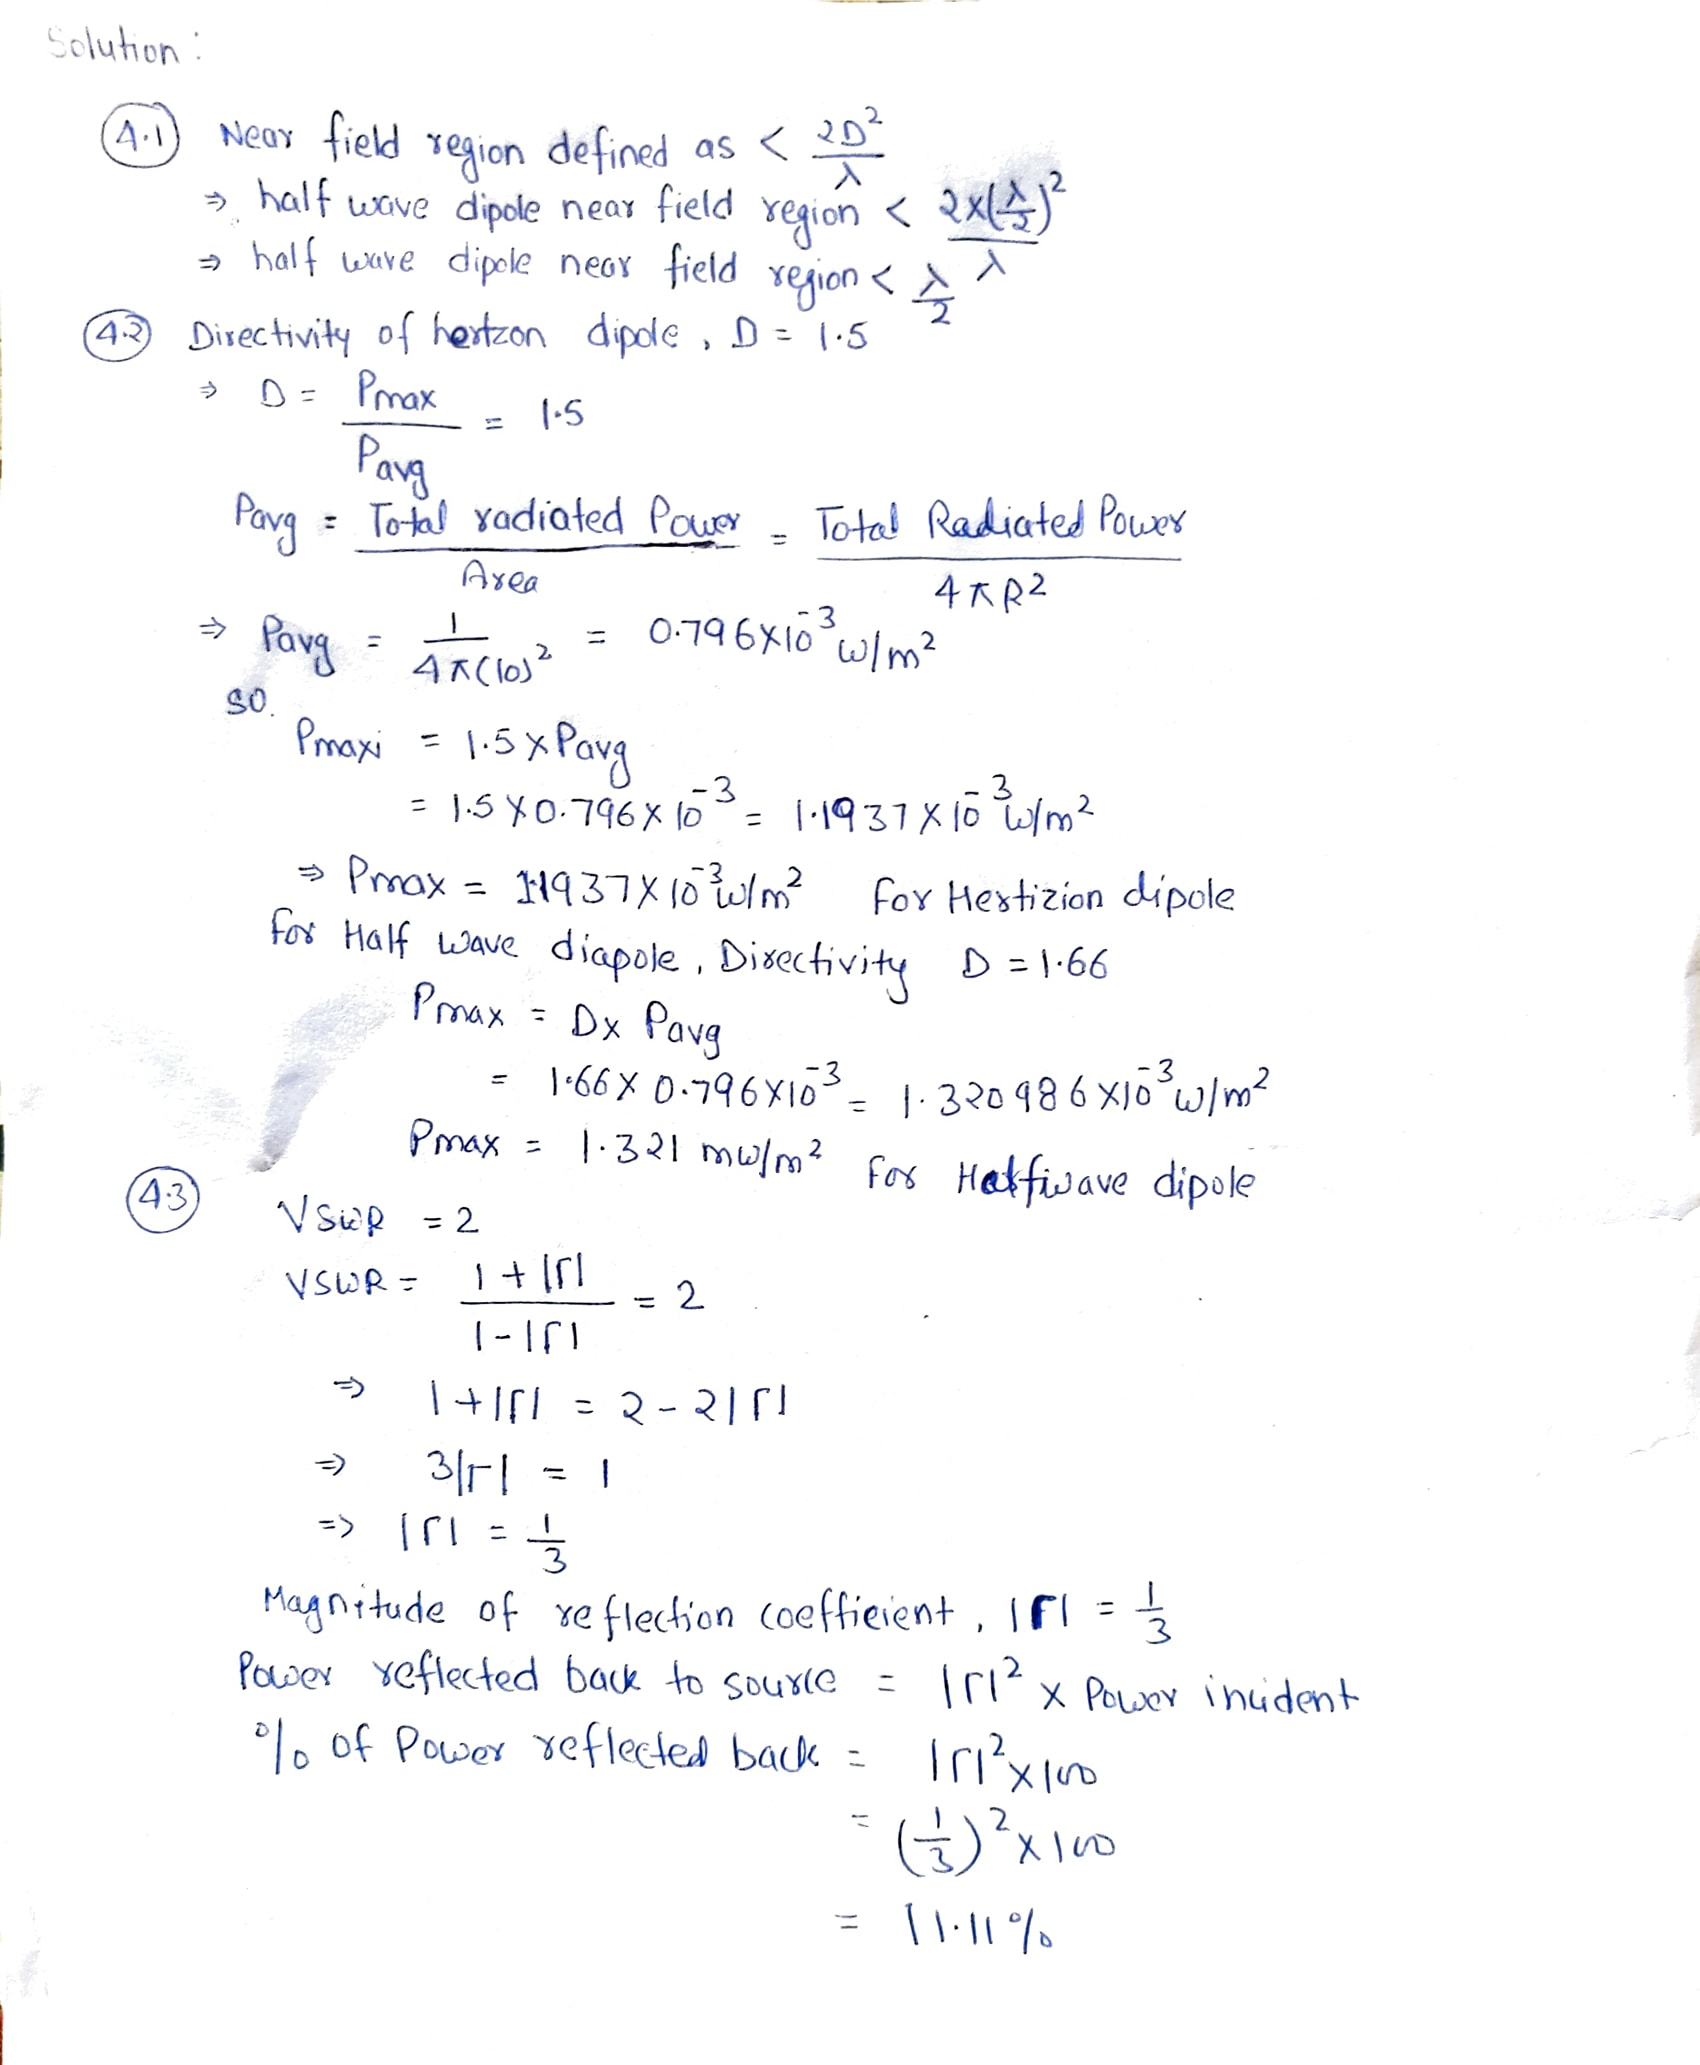 Solution :
4.1 Near field region defined as < 2D²/λ
⇒ half wave dipole near field region < 2×(λ/2)²/λ
⇒ half wave dipole near field region < λ/2
4.2 Directivity of hertzon dipole, D = 1.5
⇒ D = Pmax/Pavg = 1.5
Pavg = Total radiated Power/Area = Total Radiated Power/4πR²
⇒ Pavg = 1/4π(10)² = 0.796×10⁻³ w/m²
so.
Pmaxi = 1.5 × Pavg
= 1.5 × 0.796 × 10⁻³ = 1.1937 × 10⁻³ w/m²
⇒ Pmax = 1.1937 × 10⁻³ w/m² for Hertizion dipole
for Half wave diapole, Directivity D = 1.66
Pmax = D× Pavg
= 1.66 × 0.796×10⁻³ = 1.320986 ×10⁻³ w/m²
Pmax = 1.321 mw/m² for Halfwave dipole
4.3 VSWR = 2
VSWR = 1+|Γ|/1-|Γ| = 2
⇒ 1+|Γ| = 2-2|Γ|
⇒ 3|Γ| = 1
=> |Γ| = 1/3
Magnitude of reflection coefficient, |Γ| = 1/3
Power reflected back to source = |Γ|² × Power incident
% of Power reflected back = |Γ|²×100
= (1/3)²×100
= 11.11%